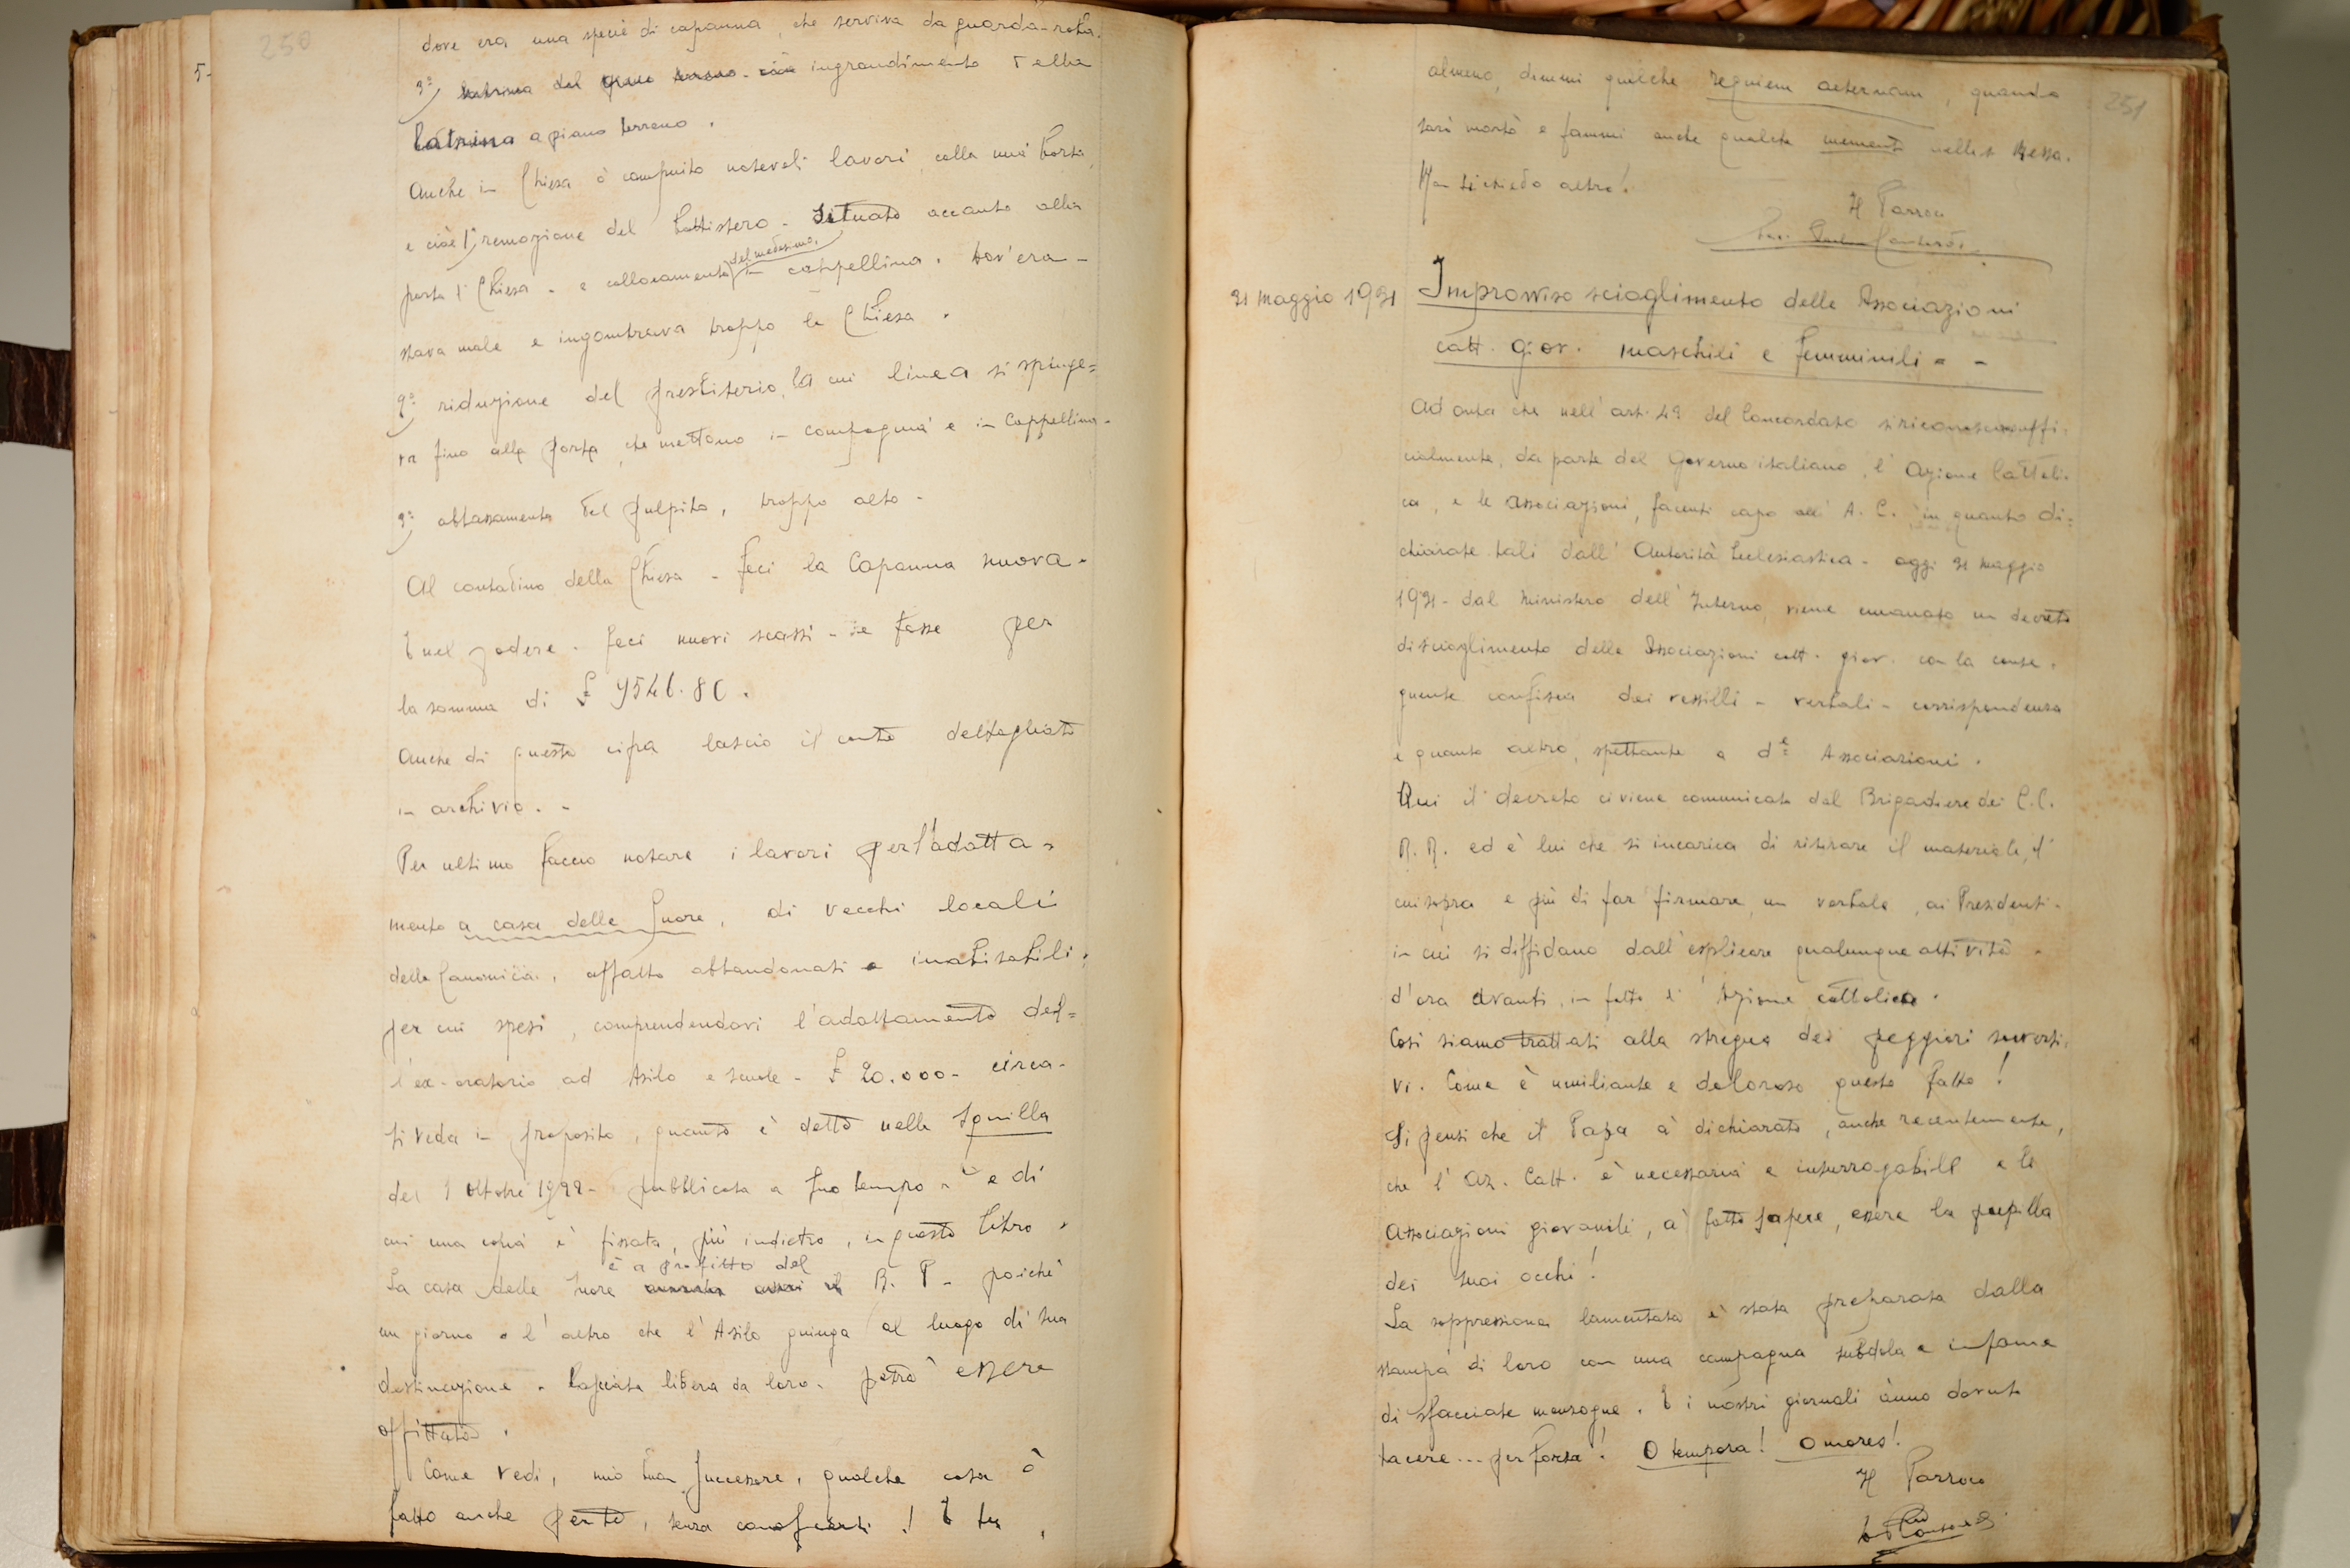 250
5-
dove era una specie di capanna, che serviva da guarda-roba.
3°) latrina del piano terreno - cioè ingrandimento della
latrina a piano terreno.
Anche in Chiesa ò compiuto notevoli lavori, colla mia borsa,
e cioè 1°) remozione del battistero - situato accanto alla
porta di Chiesa - e collocamento del medesimo, in cappellina. Dov'era -
stava male e ingombrava troppo la Chiesa.
2°) riduzione del presbiterio, la cui linea si spinge=
va fino alla porta, che mettono in compagnia e in Cappellina.
3°) abbassamento del pulpito, troppo alto -
Al contadino della Chiesa - feci la Capanna nuova -
E nel podere - feci nuovi scassi - e fosse per
la somma di £
Anche di questa cifra lascio il conto dettagliato
in archivio. -
Per ultimo faccio notare i lavori per l'adatta-
mento a casa delle Suore, di vecchi locali
della Canonica, affatto abbandonati e inabitabili;
per cui spesi, comprendendovi l'adattamento del=
l'ex-oratorio ad Asilo e scuole - £ 20.000 - circa -
Si veda in proposito, quanto è detto nella Squilla
del 1 Ottobre - pubblicata a suo tempo - e di
cui una copia è fissata, più indietro, in questo libro.
La casa delle Suore è a profitto del B. P. - poiché
un giorno o l'altro che l'Asilo giunga al luogo di sua
destinazione - lasciata libera da loro - potrà essere
affittata.
Come vedi, mio buon Successore, qualche cosa ò
fatto anche per te, senza conoscerti! E tu,
251
almeno, dimmi qualche requiem aeternam, quando
sarò morto e fammi anche qualche memento nella S. Messa.
Non ti chiedo altro!
Il Parroco
31 Maggio 1931
Improvviso scioglimento delle Associazioni
catt. giov. maschili e femminili - -
Ad onta che nell'art. 43 del Concordato si riconosca uffi-
cialmente, da parte del Governo italiano, l'Azione Cattoli-
ca, e le associazioni, facenti capo all'A. C., in quanto di=
chiarate tali dall'Autorità Ecclesiastica - oggi 31 Maggio
1931 - dal Ministero dell'Interno, viene emanato un decreto
di scioglimento delle Associazioni catt. giov. con la conse-
guente confisca dei vessilli - verbali - corrispondenza
e quanto altro, spettante a de Associazioni.
Qui il decreto ci viene comunicato dal Brigadiere dei C.C.
R.R. ed è lui che si incarica di ritirare il materiale, di
cui sopra e più di far firmare, un verbale, ai Presidenti -
in cui si diffidano dall'esplicare qualunque attività -
d'ora avanti, in fatto d'Azione cattolica.
Così siamo trattati alla stregua dei peggiori sovversi-
vi. Come è umiliante e doloroso questo fatto!
Si pensi che il Papa à dichiarato, anche recentemente,
che l'Az. Catt. è necessaria e insurrogabile e le
Associazioni giovanili, à fatto sapere, essere la pupilla
dei suoi occhi!
La soppressione lamentata è stata preparata dalla
stampa di loro con una campagna subdola e infame
di sfacciate menzogne. E i nostri giornali ànno dovuto
tacere... per forza! O tempora! O mores!
Il Parroco